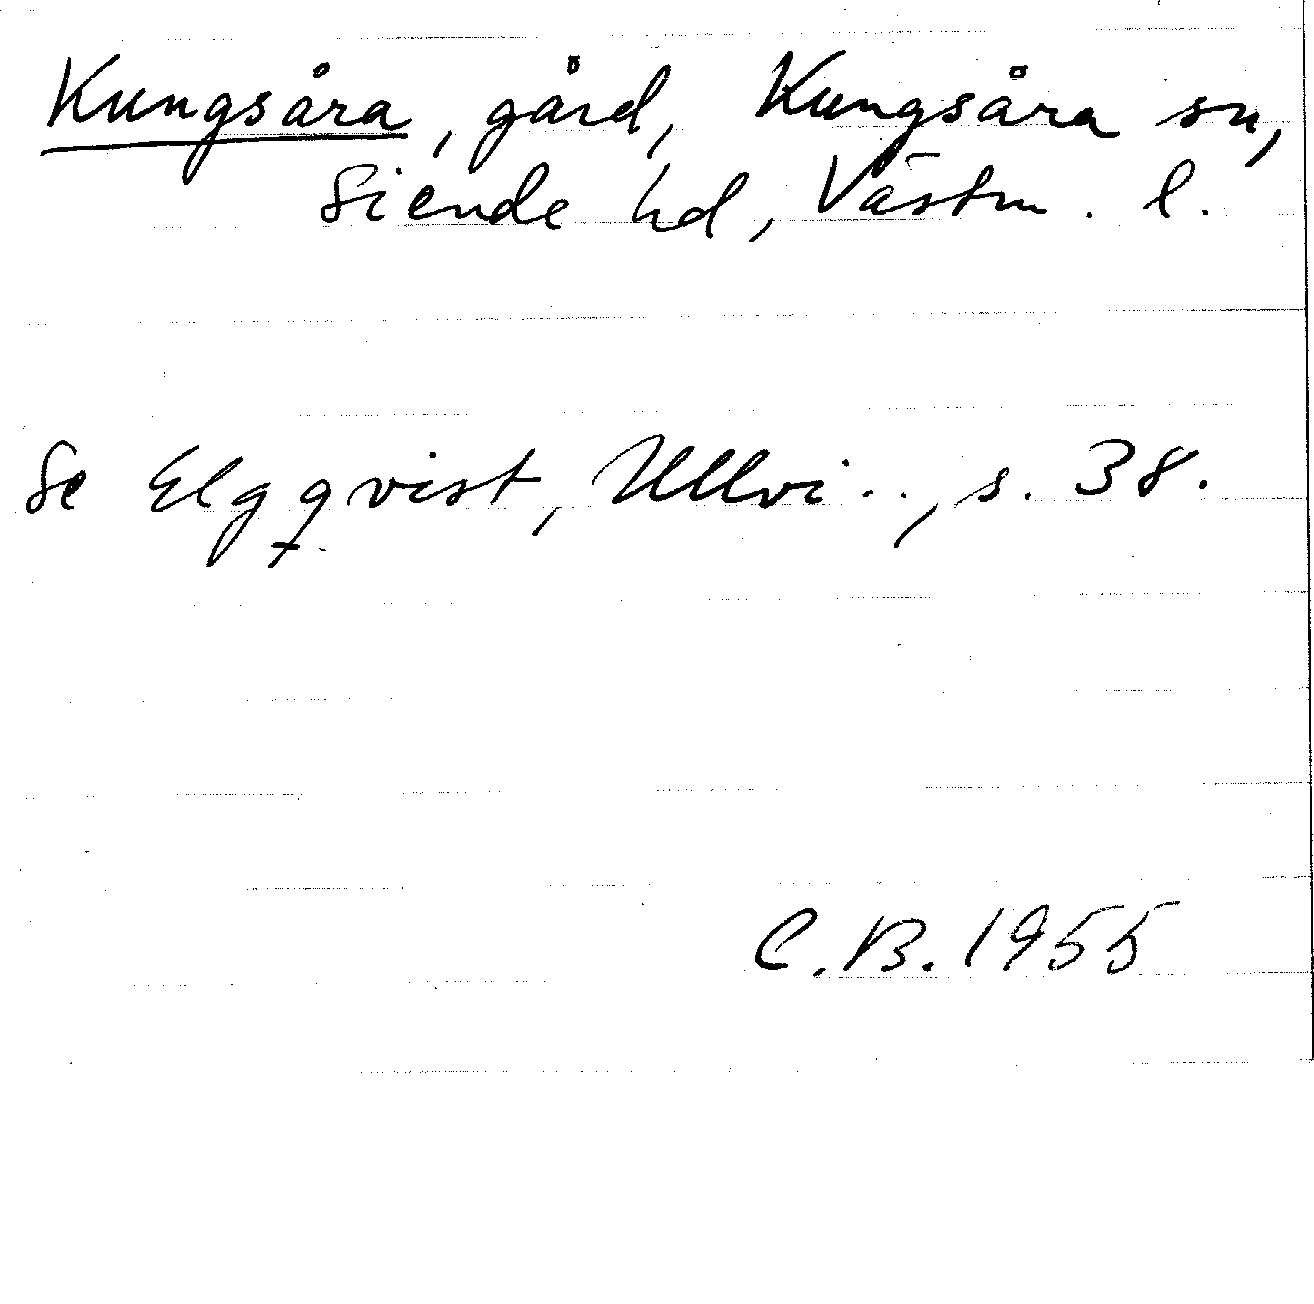 Kungsåra, gård, Kungsåra sn,
Siende hd, Västm. l.
Se Elgqvist, Ullvi.., s. 38.
C.B. 1955